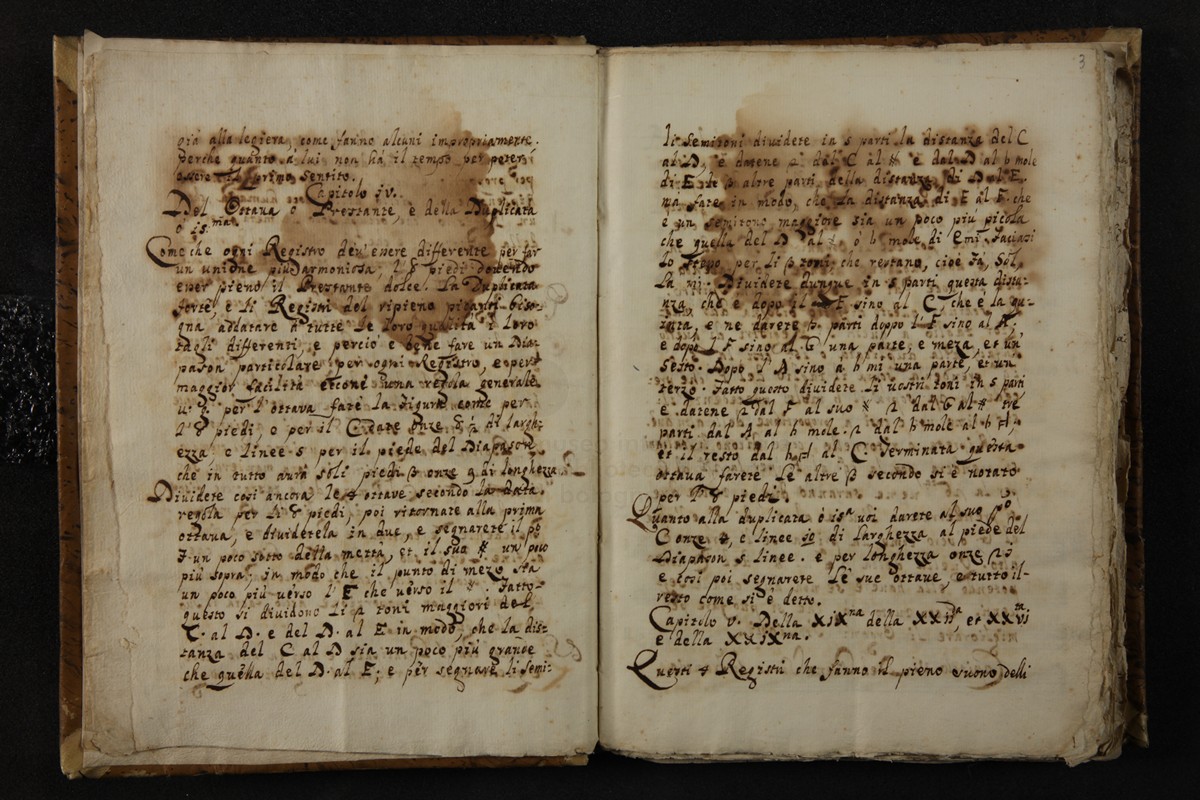 più alla legiera, come fanno alcuni impropriamente.
perche quanto a lui non hà il tempo per poter
essere il primo sentito.
Capitolo iv.
Del Ottava ò Prestante, è della Duplicata
ò 15.ma
Come che ogni Registro deu'essere differente per far
un unione più armoniosa, l' 8 piedi douendo
esser pieno il Prestante dolce. La Duplicata
forte, e li Registri del ripieno picanti biso-
gna adatare a tutte le loro qualità i loro
tagli differenti, e perciò è bene fare un Dia-
pason particolare per ogni Registro, e per
maggior facilità eccone una regola generale
u: g. per l'ottava farete la figura come per
l' 8 piedi, e per il C darete onze di largh-
ezza e linee 5 per il piede del Diapason
che in tutto aurà soli piedi 3 onze 9 di longhezza
Dividete così ancora le 4 ottave secondo la data
regola per li 8 piedi, poi ritornate alla prima
ottava, e dividetela in due, e segnarete il po
F un poco sotto della metà, et il suo # un poco
più sopra; in modo che il punto di mezo stia
un poco più verso l'F che verso il #. Fatto
questo si dividono li 2 toni maggiori del
C. al D. e del D. al E in modo, che la dis-
tanza del C al D sia un poco più grande
che quella del D. al E; e per segnare li Semi-
3
li Semitoni dividete in 5 parti la distanza del C
al D, e datene 2 del C al # e dal D al b mole
di E le 3 altre parti della distanza di D al E.
ma fate in modo, che la distanza di E al F. che
è un semitono maggiore sia un poco più picola
che quella del D al #, ò b mole di Emi. Faciasi
lo stesso per li 3 toni che restano, cioè Fà, Sol,
La mi. Dividete dunque in 5 parti questa dista-
nza, che è dopo il F sino al C che è la qu-
inta, e ne darete 3 parti doppo l'F sino al A;
e dopo l'F sino al G una parte, e meza, et un
sesto. Dopo l'A sino a b mi una parte, et un
terzo. Fatto questo dividete li vostri toni in 5 parti
e datene 2 dal F al suo # 2 dal G al # tre
parti dal A al b mole. 2 dal b mole al b #
et il resto dal b # al C. Terminata questa
ottava farete le altre 3 secondo si è notato
per l' 8 piedi.
Quanto alla duplicata ò 15a uoi darete al suo po
C onze, e linee 10 di larghezza al piede del
Diapason 5 linee. e per longhezza onze
e così poi segnarete le sue ottave, e tutto il
resto come si è detto.
Capitolo V. Della XIXna della XXIIa, et XXVIta
e della XXIXna.
Questi 4 Registri che fanno il pieno suono delli